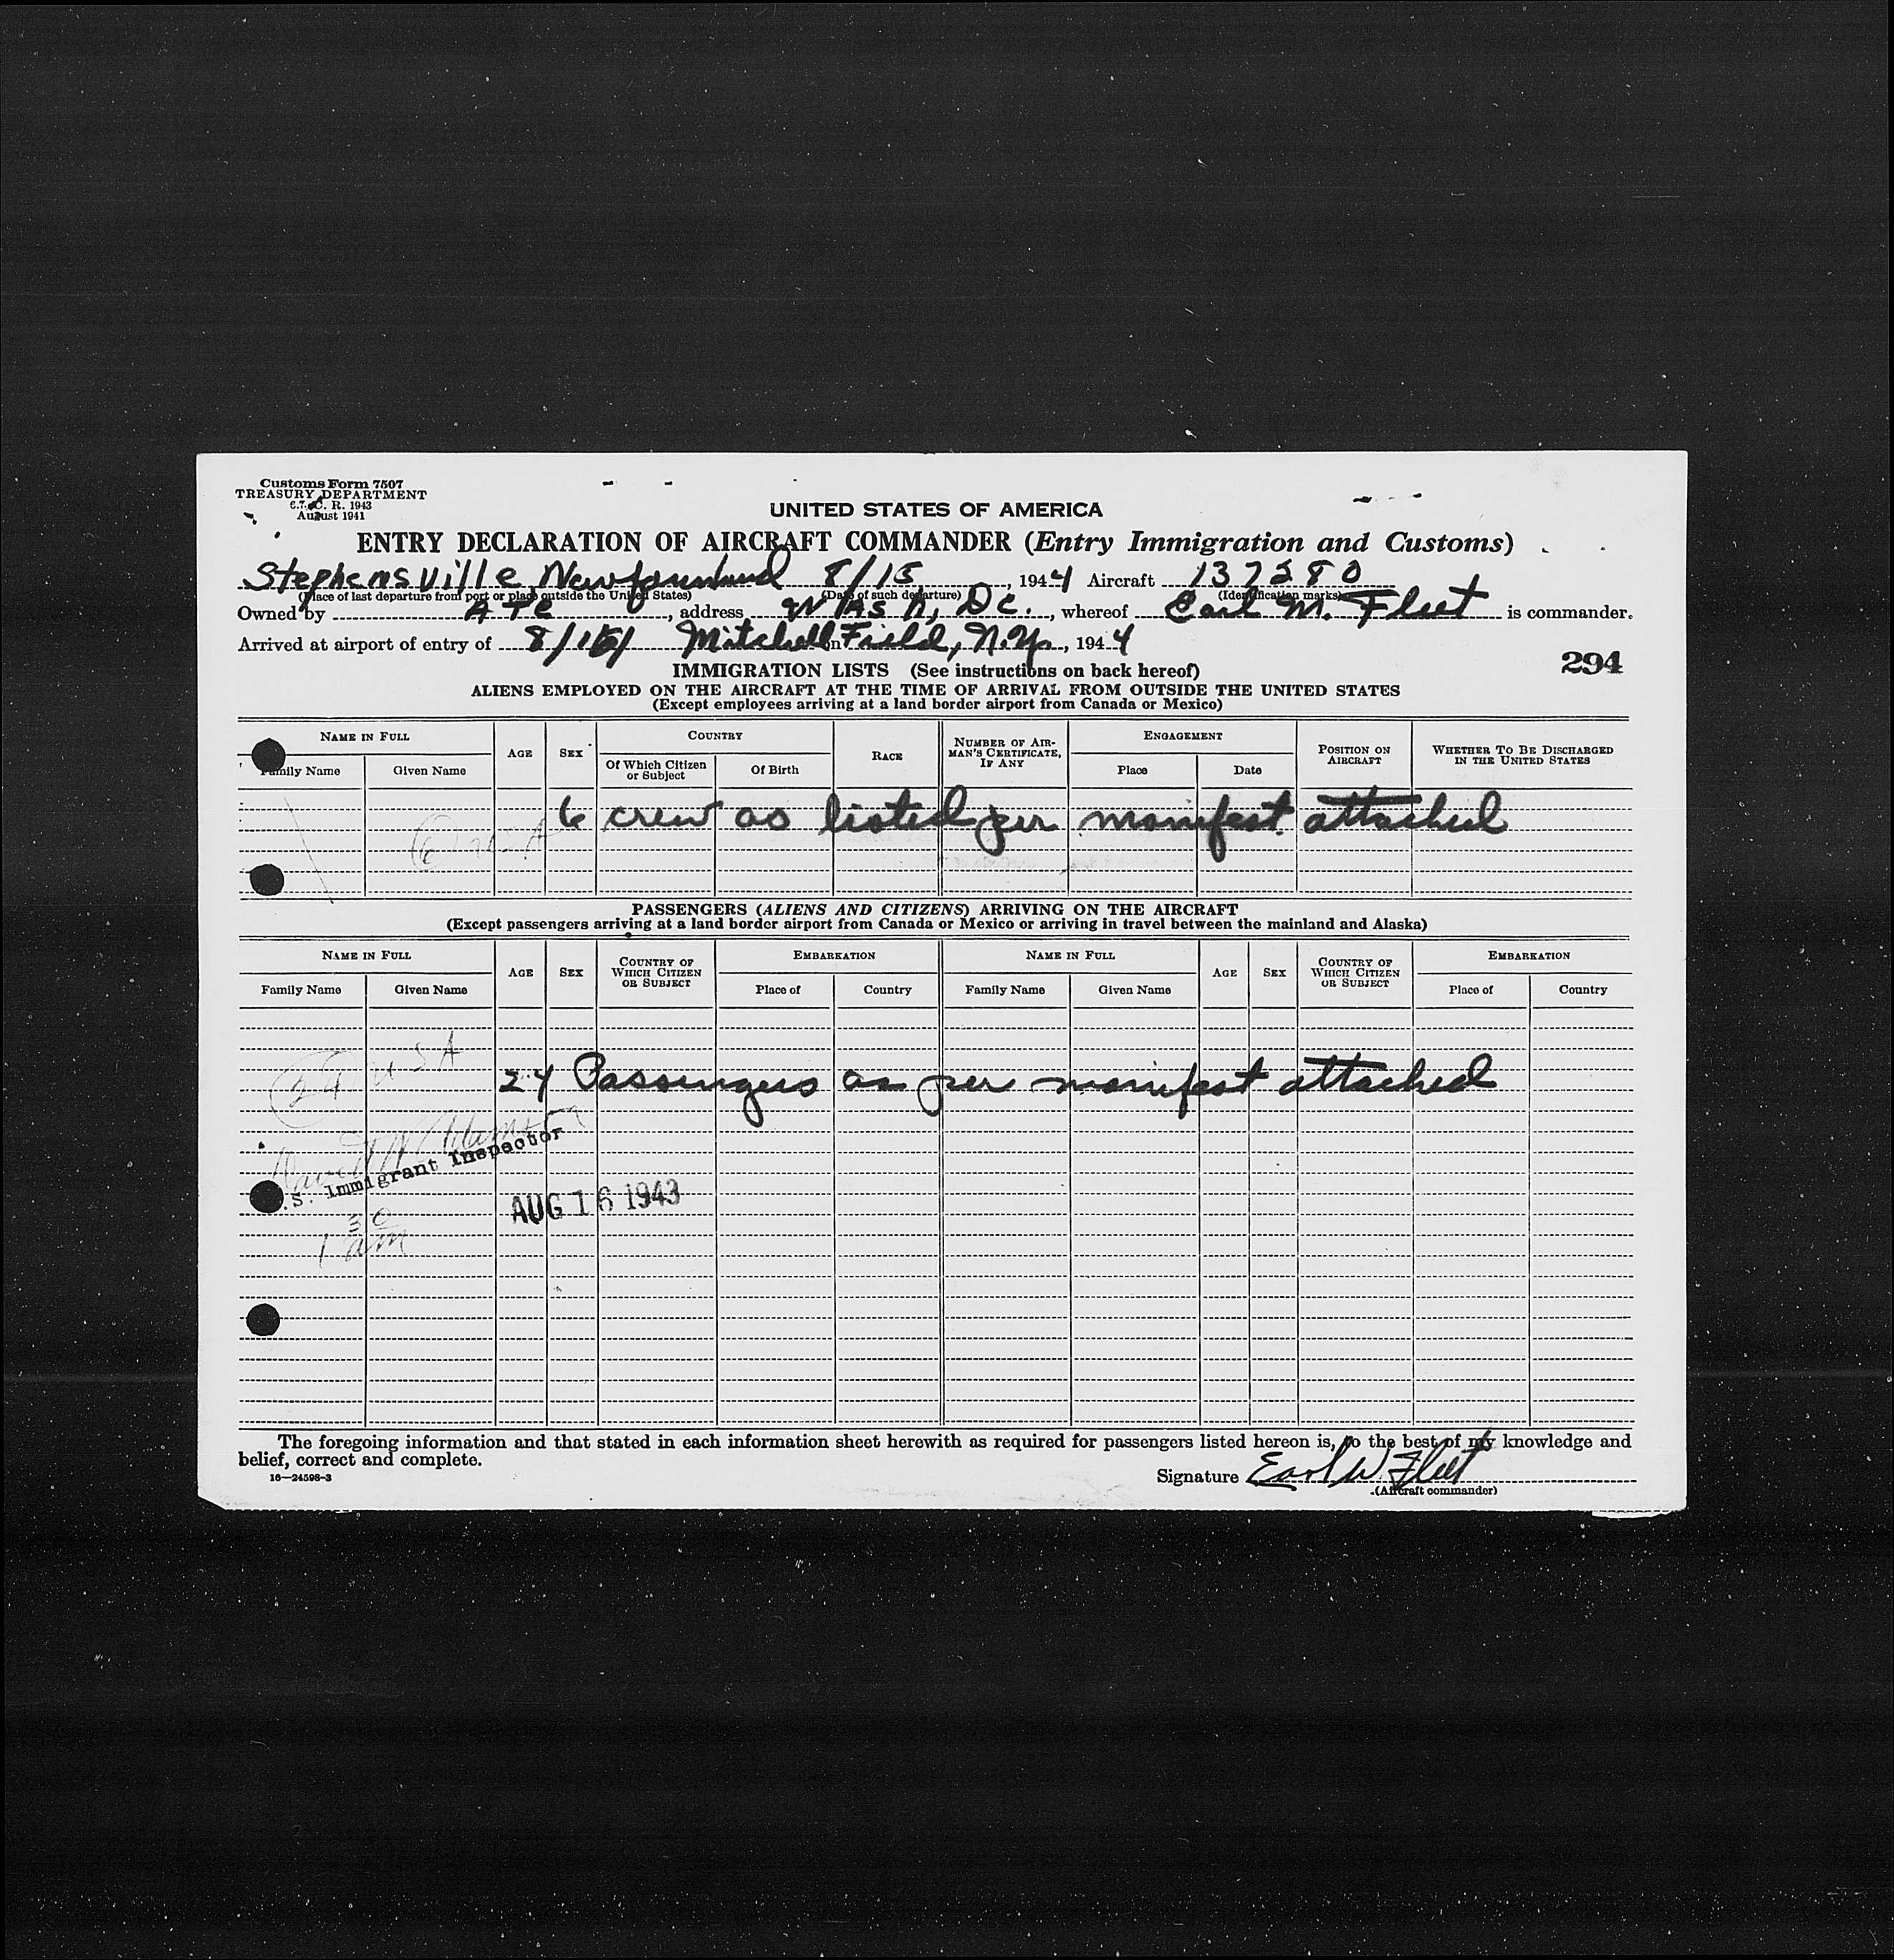 Customs Form 7507
TREASURY DEPARTMENT
C. R. 1943
August 1941
UNITED STATES OF AMERICA
ENTRY DECLARATION OF AIRCRAFT COMMANDER (Entry Immigration and Customs)
Stephensville Newfoundland 8/15, 1944 Aircraft 137280
(Place of last departure from port or place outside the United States) (Date of such departure) (Identification marks)
Owned by ATC, address Wash, DC., whereof Earl M. Fleet is commander.
Arrived at airport of entry of 8/15/ Mitchell Field, N.Y., 1944
294
IMMIGRATION LISTS (See instructions on back hereof)
ALIENS EMPLOYED ON THE AIRCRAFT AT THE TIME OF ARRIVAL FROM OUTSIDE THE UNITED STATES
(Except employees arriving at a land border airport from Canada or Mexico)
NAME IN FULL AGE SEX COUNTRY RACE NUMBER OF AIRMAN'S CERTIFICATE, IF ANY ENGAGEMENT POSITION ON AIRCRAFT WHETHER TO BE DISCHARGED IN THE UNITED STATES
Family Name Given Name Of Which Citizen or Subject Of Birth Place Date
6 crew as listed per manifest attached
6 USA
PASSENGERS (ALIENS AND CITIZENS) ARRIVING ON THE AIRCRAFT
(Except passengers arriving at a land border airport from Canada or Mexico or arriving in travel between the mainland and Alaska)
NAME IN FULL AGE SEX COUNTRY OF WHICH CITIZEN OR SUBJECT EMBARKATION NAME IN FULL AGE SEX COUNTRY OF WHICH CITIZEN OR SUBJECT EMBARKATION
Family Name Given Name Place of Country Family Name Given Name Place of Country
24 USA
24 Passengers as per manifest attached
S. Immigrant Inspector
AUG 16 1943
1 30 am
The foregoing information and that stated in each information sheet herewith as required for passengers listed hereon is, to the best of my knowledge and
belief, correct and complete.
16—24598-3
Signature Earl W. Fleet
(Aircraft commander)